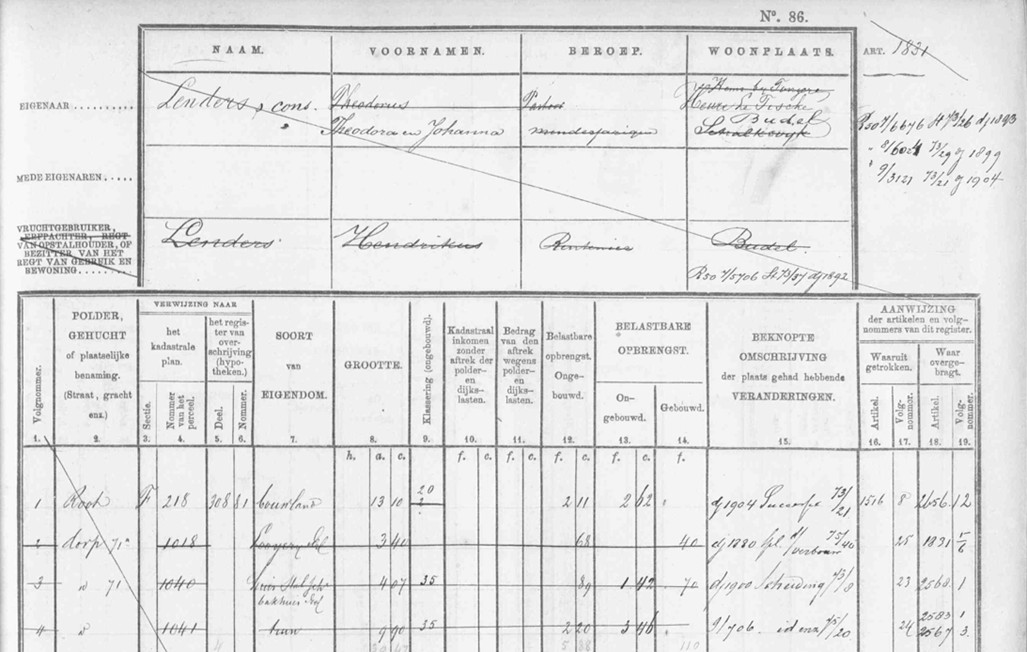 No. 86.
NAAM. VOORNAMEN. BEROEP. WOONPLAATS. ART. 1831
EIGENAAR.......... Lenders, & cons. Theodorus Pastoor
Theodora en Johanna minderjarigen Budel
Schalkwyk
R50 7/6676 St 73/26 dj 1893
" 8/6024 73/29 dj 1899
" 9/3121 73/21 dj 1904
MEDE EIGENAREN.....
VRUCHTGEBRUIKER,
ERFPACHTER, REGT
VAN OPSTALHOUDER, OF
BEZITTER VAN HET
REGT VAN GEBRUIK EN
BEWONING........
Lenders Hendrikus Rentenier Budel.
R50 7/5706 St 73/57 dj 1892
Volgnommer.
POLDER,
GEHUCHT
of plaatselijke
benaming.
(Straat, gracht
enz.)
VERWIJZING NAAR
het
kadastrale
plan.
het regis-
ter van
over-
schrijving
(hypo-
theken.)
Sectie.
Nommer
van het
perceel.
Deel.
Nommer.
SOORT
van
EIGENDOM.
GROOTTE.
Klassering (ongebouwd).
Kadastraal
inkomen
zonder
aftrek der
polder-
en
dijks-
lasten.
Bedrag
van den
aftrek
wegens
polder-
en
dijks-
lasten.
Belastbare
opbrengst.
Onge-
bouwd.
BELASTBARE
OPBRENGST.
On-
gebouwd.
Gebouwd.
BEKNOPTE
OMSCHRIJVING
der plaats gehad hebbende
VERANDERINGEN.
AANWIJZING
der artikelen en volg-
nommers van dit register.
Waaruit
getrokken.
Waar
overge-
bragt.
Artikel.
Volg-
nommer.
Artikel.
Volg-
nommer.
1. 2. 3. 4. 5. 6. 7. 8. 9. 10. 11. 12. 13. 14. 15. 16. 17. 18. 19.
h. a. c. f. c. f. c. f. c. f. c. f.
1 Root F 218 308 81 bouwland 13 10 20 2 2 11 2 62 " dj 1904 73/21 1516 8 2656 12
2 dorp 71a 1018 3 40 68 40 dj 1880 75/40 25 1831 5/6
3 " 71 1040 Huis Stal
bakhuis Erf 4 07 35 89 1 42 70 dj 1900 Scheiding 73/8 23 2568 1
4 " 1041 tuin 9 90 35 2 20 3 46 " 9/706 75/20 24 2583 1
2567 3.